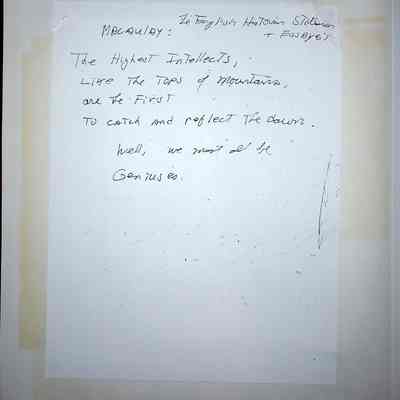 MACAULAY: In English Historian Statesman
+ Essayist
The Highest Intellects,
Like The Tops of Mountains,
are the First
To catch and reflect The dawn.
Well, we must all be
Geniuses.